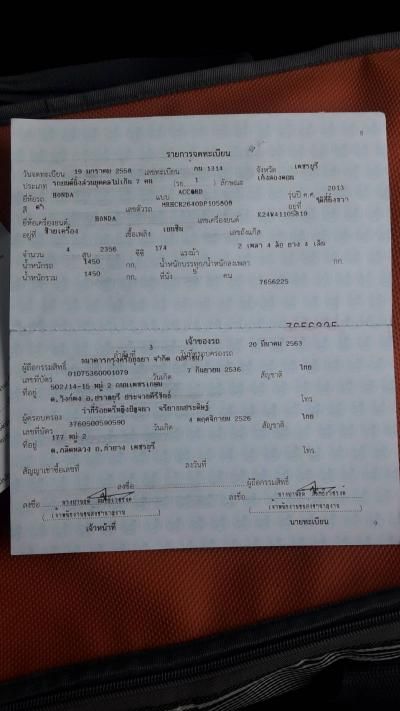 8
รายการจดทะเบียน
วันจดทะเบียน 19 มกราคม 2558 เลขทะเบียน กน 1314 จังหวัด เพชรบุรี
ประเภท รถยนต์นั่งส่วนบุคคลไม่เกิน 7 คน (รย. 1 ) ลักษณะ เก๋งสองตอน
ยี่ห้อรถ HONDA แบบ ACCORD รุ่นปี ค.ศ. 2013
สี ดำ เลขตัวรถ MRHCR2640DP105808 อยู่ที่
ยี่ห้อเครื่องยนต์ HONDA เลขเครื่องยนต์ K24W41105819
อยู่ที่ ซ้ายเครื่อง เชื้อเพลิง เบนซิน เลขถังแก๊ส
จำนวน 4 สูบ 2356 ซีซี 174 แรงม้า 2 เพลา 4 ล้อ ยาง 4 เส้น
น้ำหนักรถ 1450 กก. น้ำหนักบรรทุก/น้ำหนักลงเพลา กก.
น้ำหนักรวม 1450 กก. ที่นั่ง 5 คน
7656225
เจ้าของรถ
ลำดับที่ 3 วันที่ครอบครองรถ 20 มีนาคม 2563
ผู้ถือกรรมสิทธิ์ ธนาคารกรุงศรีอยุธยา จำกัด (มหาชน)
เลขที่บัตร 0107536001079 วันเกิด 7 กันยายน 2536 สัญชาติ ไทย
ที่อยู่ 502/14-15 หมู่ 2 ถนนเพชรเกษม
โทร
ผู้ครอบครอง
เลขที่บัตร 3760500590590 วันเกิด 4 พฤศจิกายน 2526 สัญชาติ ไทย
ที่อยู่ 177 หมู่ 2
โทร
สัญญาเช่าซื้อเลขที่ ลงวันที่
ลงชื่อ ผู้ถือกรรมสิทธิ์
ลงชื่อ ลงชื่อ
เจ้าหน้าที่ นายทะเบียน
9